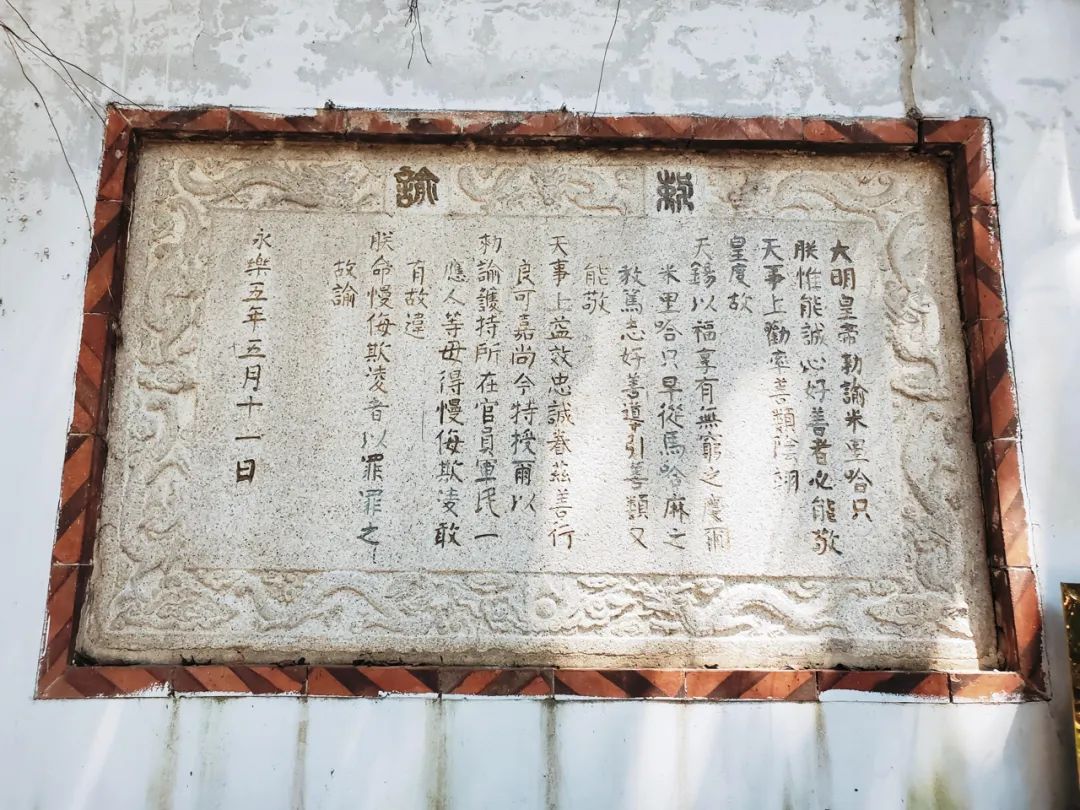 敕諭
大明皇帝勅諭米里哈只
朕惟能誠心好善者必能敬
天事上勸率善類陰翊
皇度故
天錫以福享有無窮之慶爾
米里哈只早從馬哈麻之
教篤志好善導引善類又
能敬
天事上益效忠誠眷茲善行
良可嘉尚今特授爾以
勅諭護持所在官員軍民一
應人等毋得慢侮欺凌敢
有故違
朕命慢侮欺凌者以罪罪之
故諭
永樂五年五月十一日